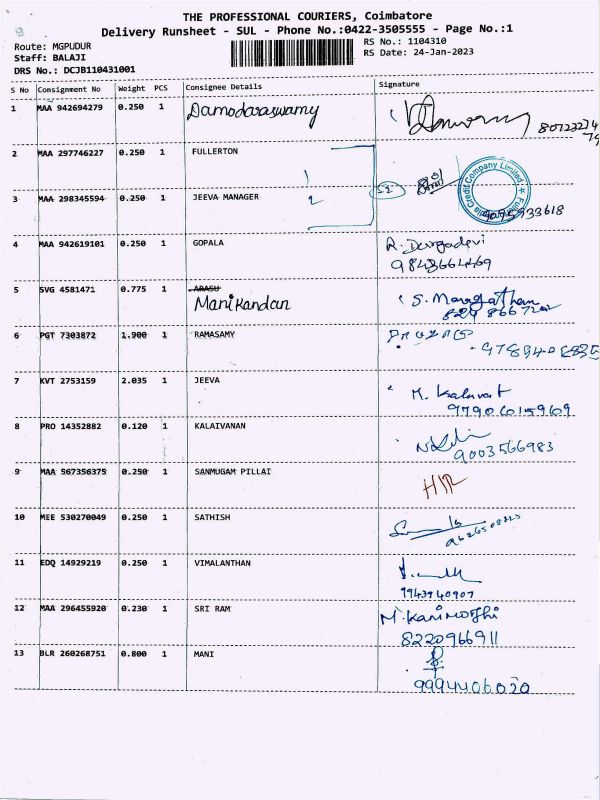 THE PROFESSIONAL COURIERS, Coimbatore
Delivery Runsheet - SUL - Phone No.:0422-3505555 - Page No.:1
Route: MGPUDUR
Staff: BALAJI
DRS No.: DCJB110431001
RS No.: 1104310
RS Date: 24-Jan-2023
S No Consignment No Weight PCS Consignee Details Signature
1 MAA 942694279 0.250 1 Damodaraswamy
2 MAA 297746227 0.250 1 FULLERTON
3 MAA 298345594 0.250 1 JEEVA MANAGER
4 MAA 942619101 0.250 1 GOPALA R. Durgadevi
9843664469
5 SVG 4581471 0.775 1 ARASU
Manikandan
6 PGT 7303872 1.900 1 RAMASAMY
7 KVT 2753159 2.035 1 JEEVA
8 PRO 14352882 0.120 1 KALAIVANAN
9003566983
9 MAA 567356375 0.250 1 SANMUGAM PILLAI
10 MEE 530270049 0.250 1 SATHISH
11 EDQ 14929219 0.250 1 VIMALANTHAN
9943940907
12 MAA 296455920 0.230 1 SRI RAM M. Kanimozhi
8220966911
13 BLR 260268751 0.800 1 MANI
9994406020